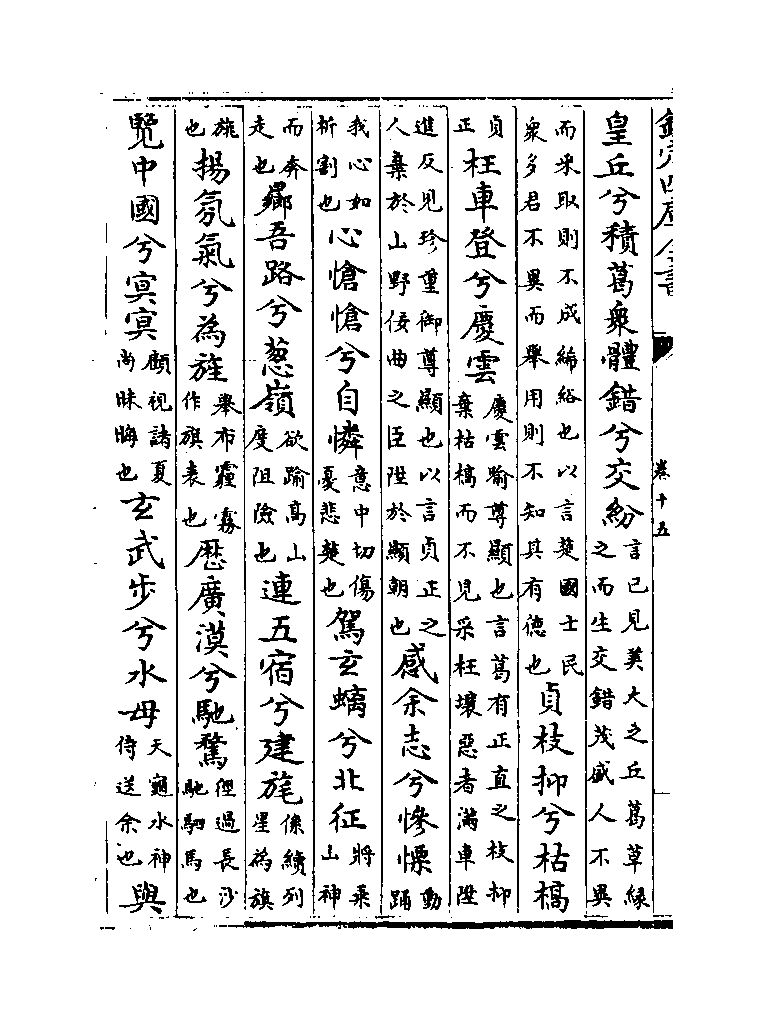 欽定四庫全書 卷十五
皇丘兮積葛衆體錯兮交紛言已見美大之丘葛草緣之而生交錯茂盛人不異
而采取則不成絺綌也以言楚國士民衆多君不異而舉用則不知其有德也貞枝抑兮枯槁
貞正枉車登兮慶雲慶雲喻尊顯也言葛有正直之枝抑棄枯槁而不見采枉壞惡者滿車陞
進反見珍重御尊顯也以言貞正之人棄於山野佞曲之臣陞於顯朝也感余志兮慘慄動踊
我心如析割也心愴愴兮自憐意中切傷憂悲楚也駕玄螭兮北征將乘山神
而奔走也鄉吾路兮葱嶺欲踰高山度阻險也連五宿兮建旄係續列星為旗
旄也揚氛氣兮為旌舉布霾霧作旗表也歷廣漠兮馳騖徑過長沙馳駟馬也
覽中國兮冥冥顧視諸夏尚昧晦也玄武步兮水母天龜水神侍送余也與